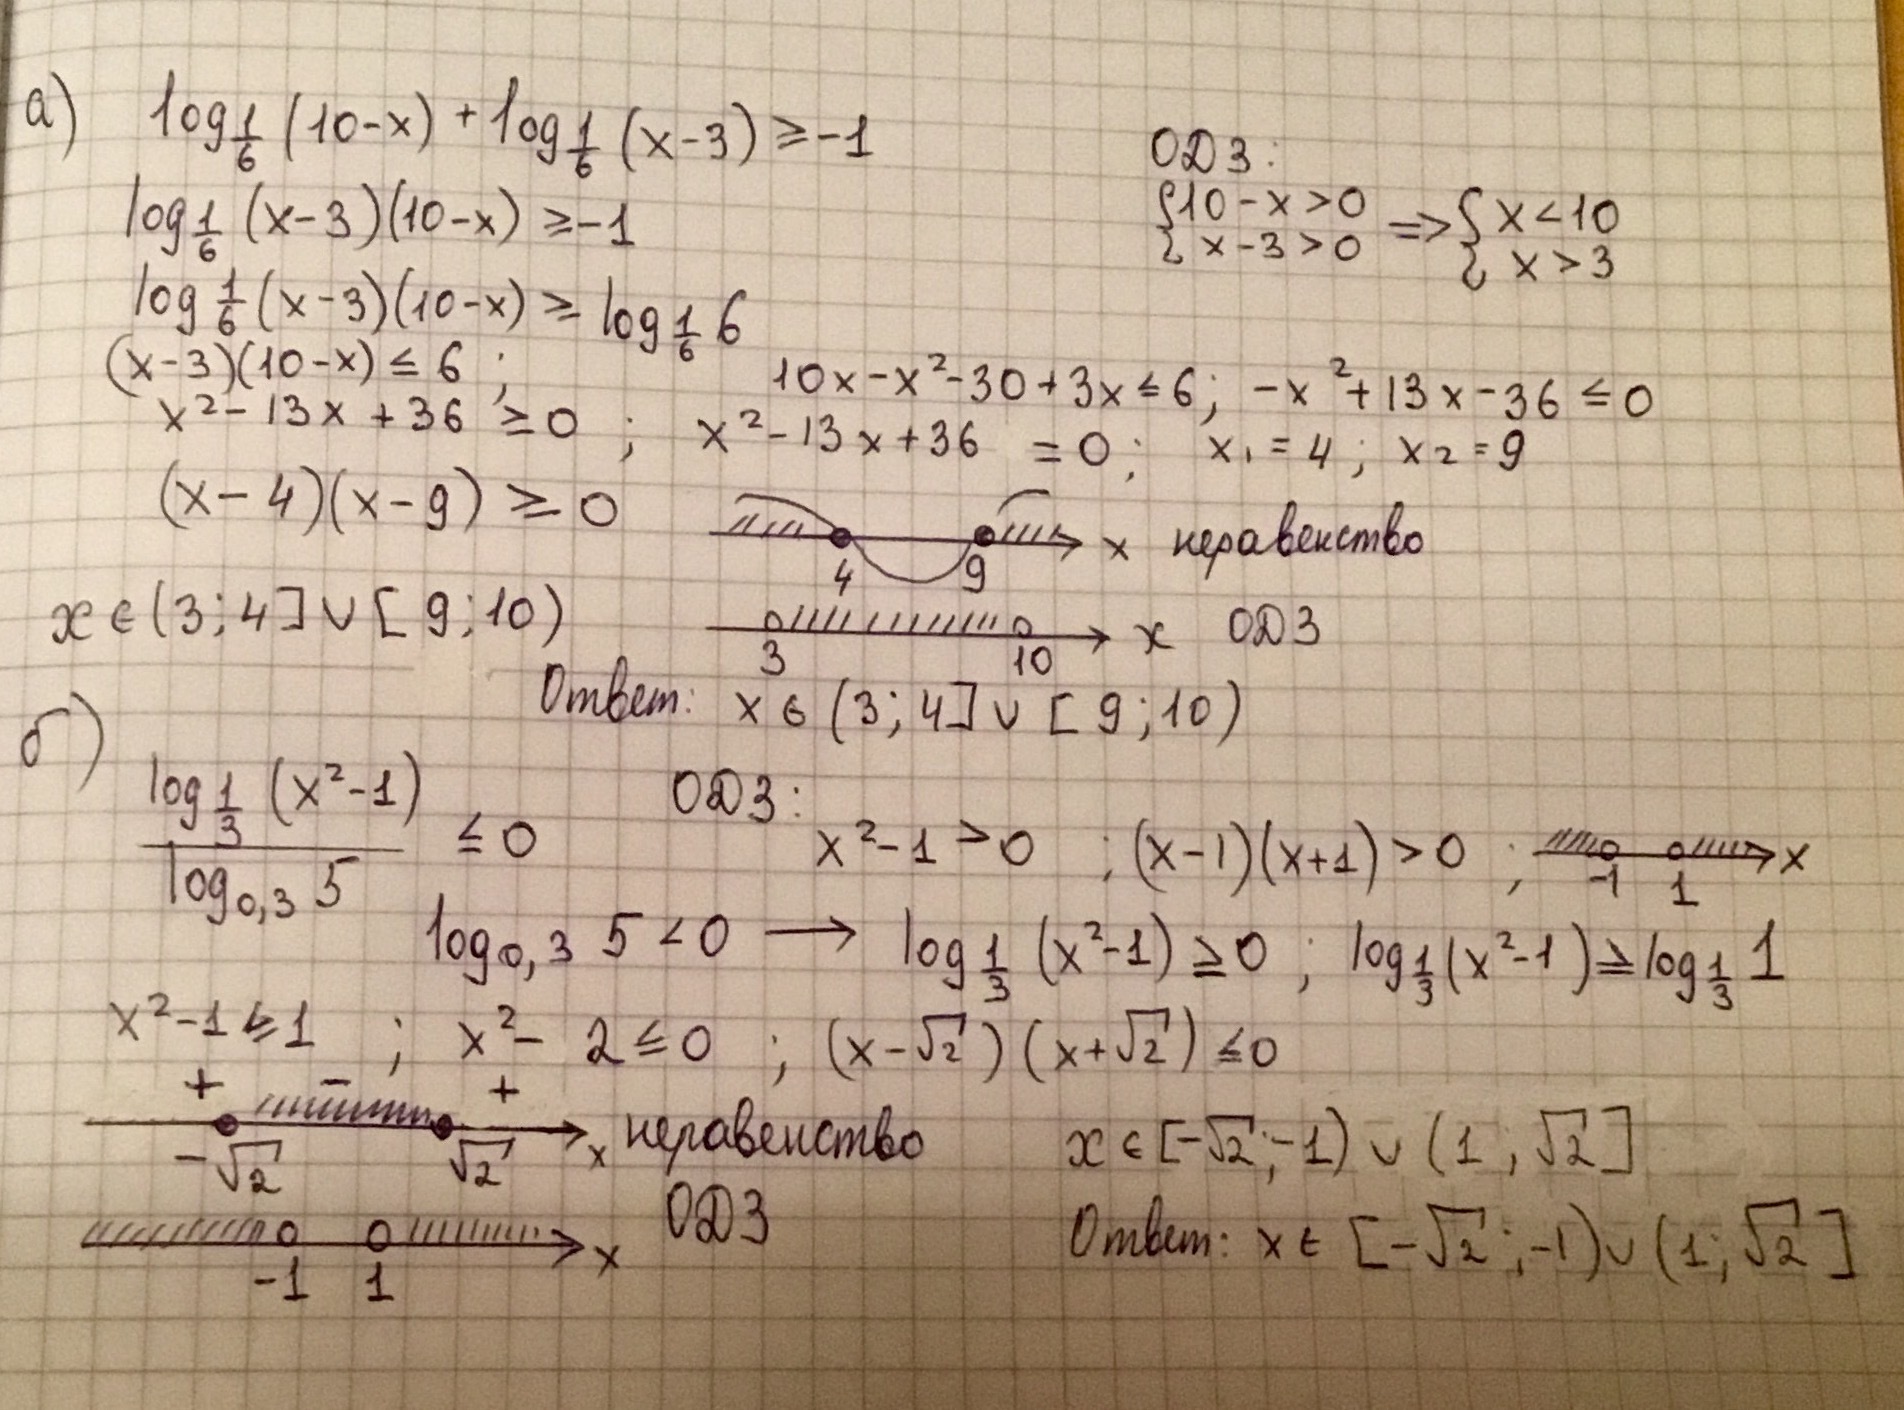 а) log_{1/6} (10-x) + log_{1/6} (x-3) ≥ -1
ОДЗ:
{10-x>0 => {x<10
{x-3>0 {x>3
log_{1/6} (x-3)(10-x) ≥ -1
log_{1/6} (x-3)(10-x) ≥ log_{1/6} 6
(x-3)(10-x) ≤ 6 ; 10x-x²-30+3x ≤ 6; -x²+13x-36 ≤ 0
x²-13x+36 ≥ 0 ; x²-13x+36 = 0; x₁=4; x₂=9
(x-4)(x-9) ≥ 0
4 9 x неравенство
x ∈ (3;4] ∪ [9;10)
3 10 x ОДЗ
Ответ: x ∈ (3;4] ∪ [9;10)
б) log_{1/3} (x²-1) / log_{0,3} 5 ≤ 0
ОДЗ:
x²-1>0 ; (x-1)(x+1)>0 ; -1 1 x
log_{0,3} 5<0 → log_{1/3} (x²-1) ≥ 0 ; log_{1/3} (x²-1) ≥ log_{1/3} 1
x²-1 ≤ 1 ; x²-2 ≤ 0 ; (x-√2)(x+√2) ≤ 0
+ - +
-√2 √2 x неравенство
x ∈ [-√2;-1) ∪ (1;√2]
-1 1 x ОДЗ
Ответ: x ∈ [-√2;-1) ∪ (1;√2]